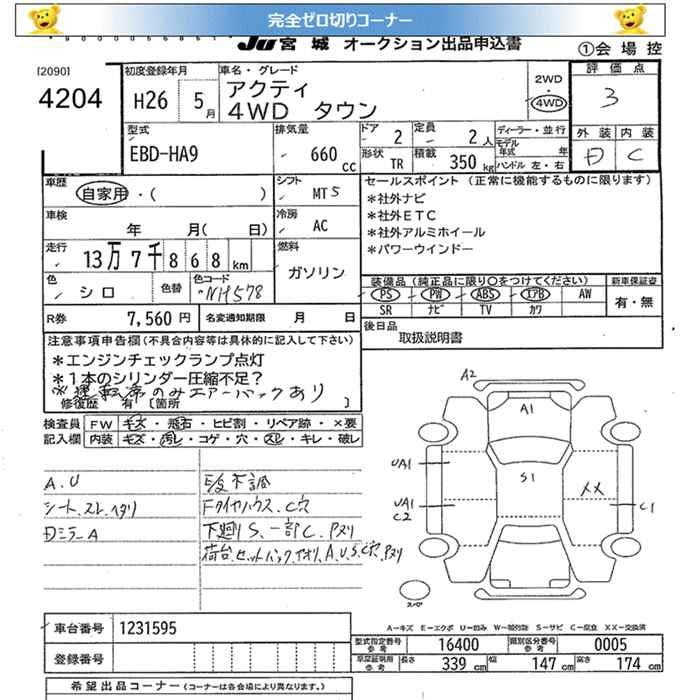 完全ゼロ切りコーナー
JU 宮城 オークション出品申込書
①会場控
[2090]
4204
初度登録年月
H26 5月
車名・グレード
アクティ
4WD タウン
2WD
・
4WD
評価点
3
外装 内装
D C
型式
EBD-HA9
排気量
660 cc
ドア 2
定員 2人
形状 TR
積載 350kg
ディーラー・並行
モデル年式 年
ハンドル 左・右
車歴
自家用・( )
シフト
MT 5
車検
年 月( 日)
冷房
AC
走行
13万7千868km
燃料
ガソリン
色
シロ
色替
色コード
NH578
R券 7,560円
名変通知期限 月 日
セールスポイント (正常に機能するものに限ります)
*社外ナビ
*社外ETC
*社外アルミホイール
*パワーウインドー
装備品 (純正品に限り〇をつけてください)
新車保証書
PS PW ABS エアB AW
SR ナビ TV カワ
有・無
後日品
取扱説明書
注意事項申告欄(不具合内容等は具体的に記入して下さい)
*エンジンチェックランプ点灯
*1本のシリンダー圧縮不足?
※運転席のみエアーバックあり
修復歴 有 [箇所 ]
検査員記入欄
FW キズ・飛石・ヒビ割・リペア跡・×要
内装 キズ・汚レ・コゲ・穴・スレ・キレ・破レ
A.U
シート.スレ.ヘタリ
Dミラー A
E/g不調
Fタイヤハウス.C穴
下廻り S.一部C.Pヌリ
荷台.セットバック.アオリ.A.U.S.C穴.Pヌリ
A2
A1
UA1
S1
UA1
C2
XX
C1
スペア
A−キズ E−エクボ U−凹み W−補修跡 S−サビ C−腐食 XX−交換済
車台番号 1231595
登録番号
型式指定番号 参考 16400
類別区分番号 参考 0005
車検証明用 参考 長さ 339cm 幅 147cm 高さ 174cm
希望出品コーナー (コーナーは各会場により異なります。)